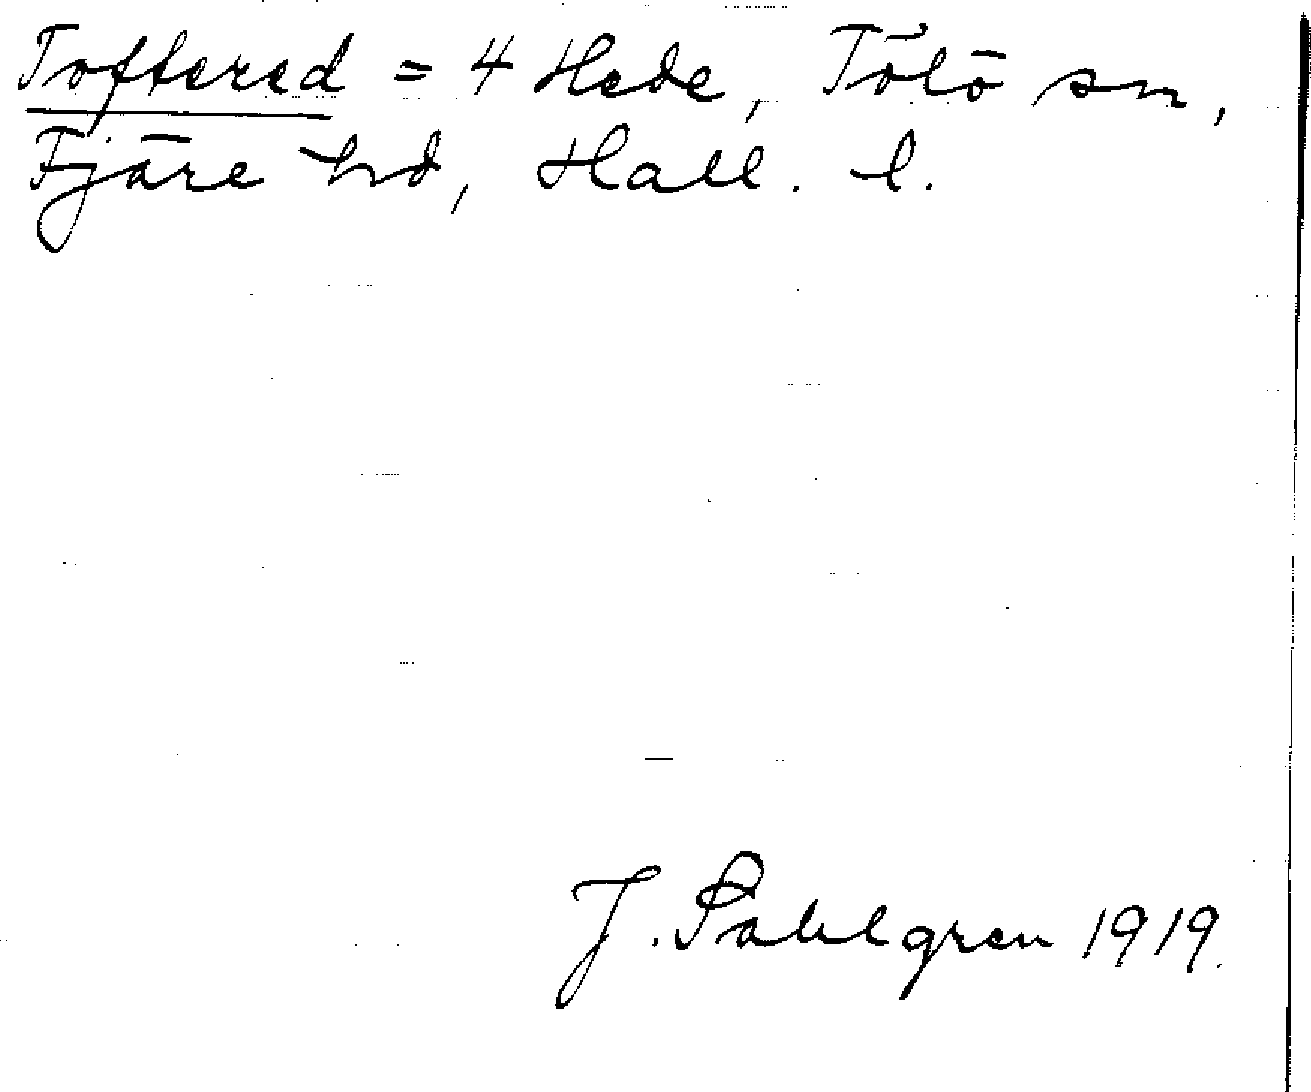 Toftered = 4 Hede, Tölö sn,
Fjäre hd, Hall. l.
J. Sahlgren 1919.